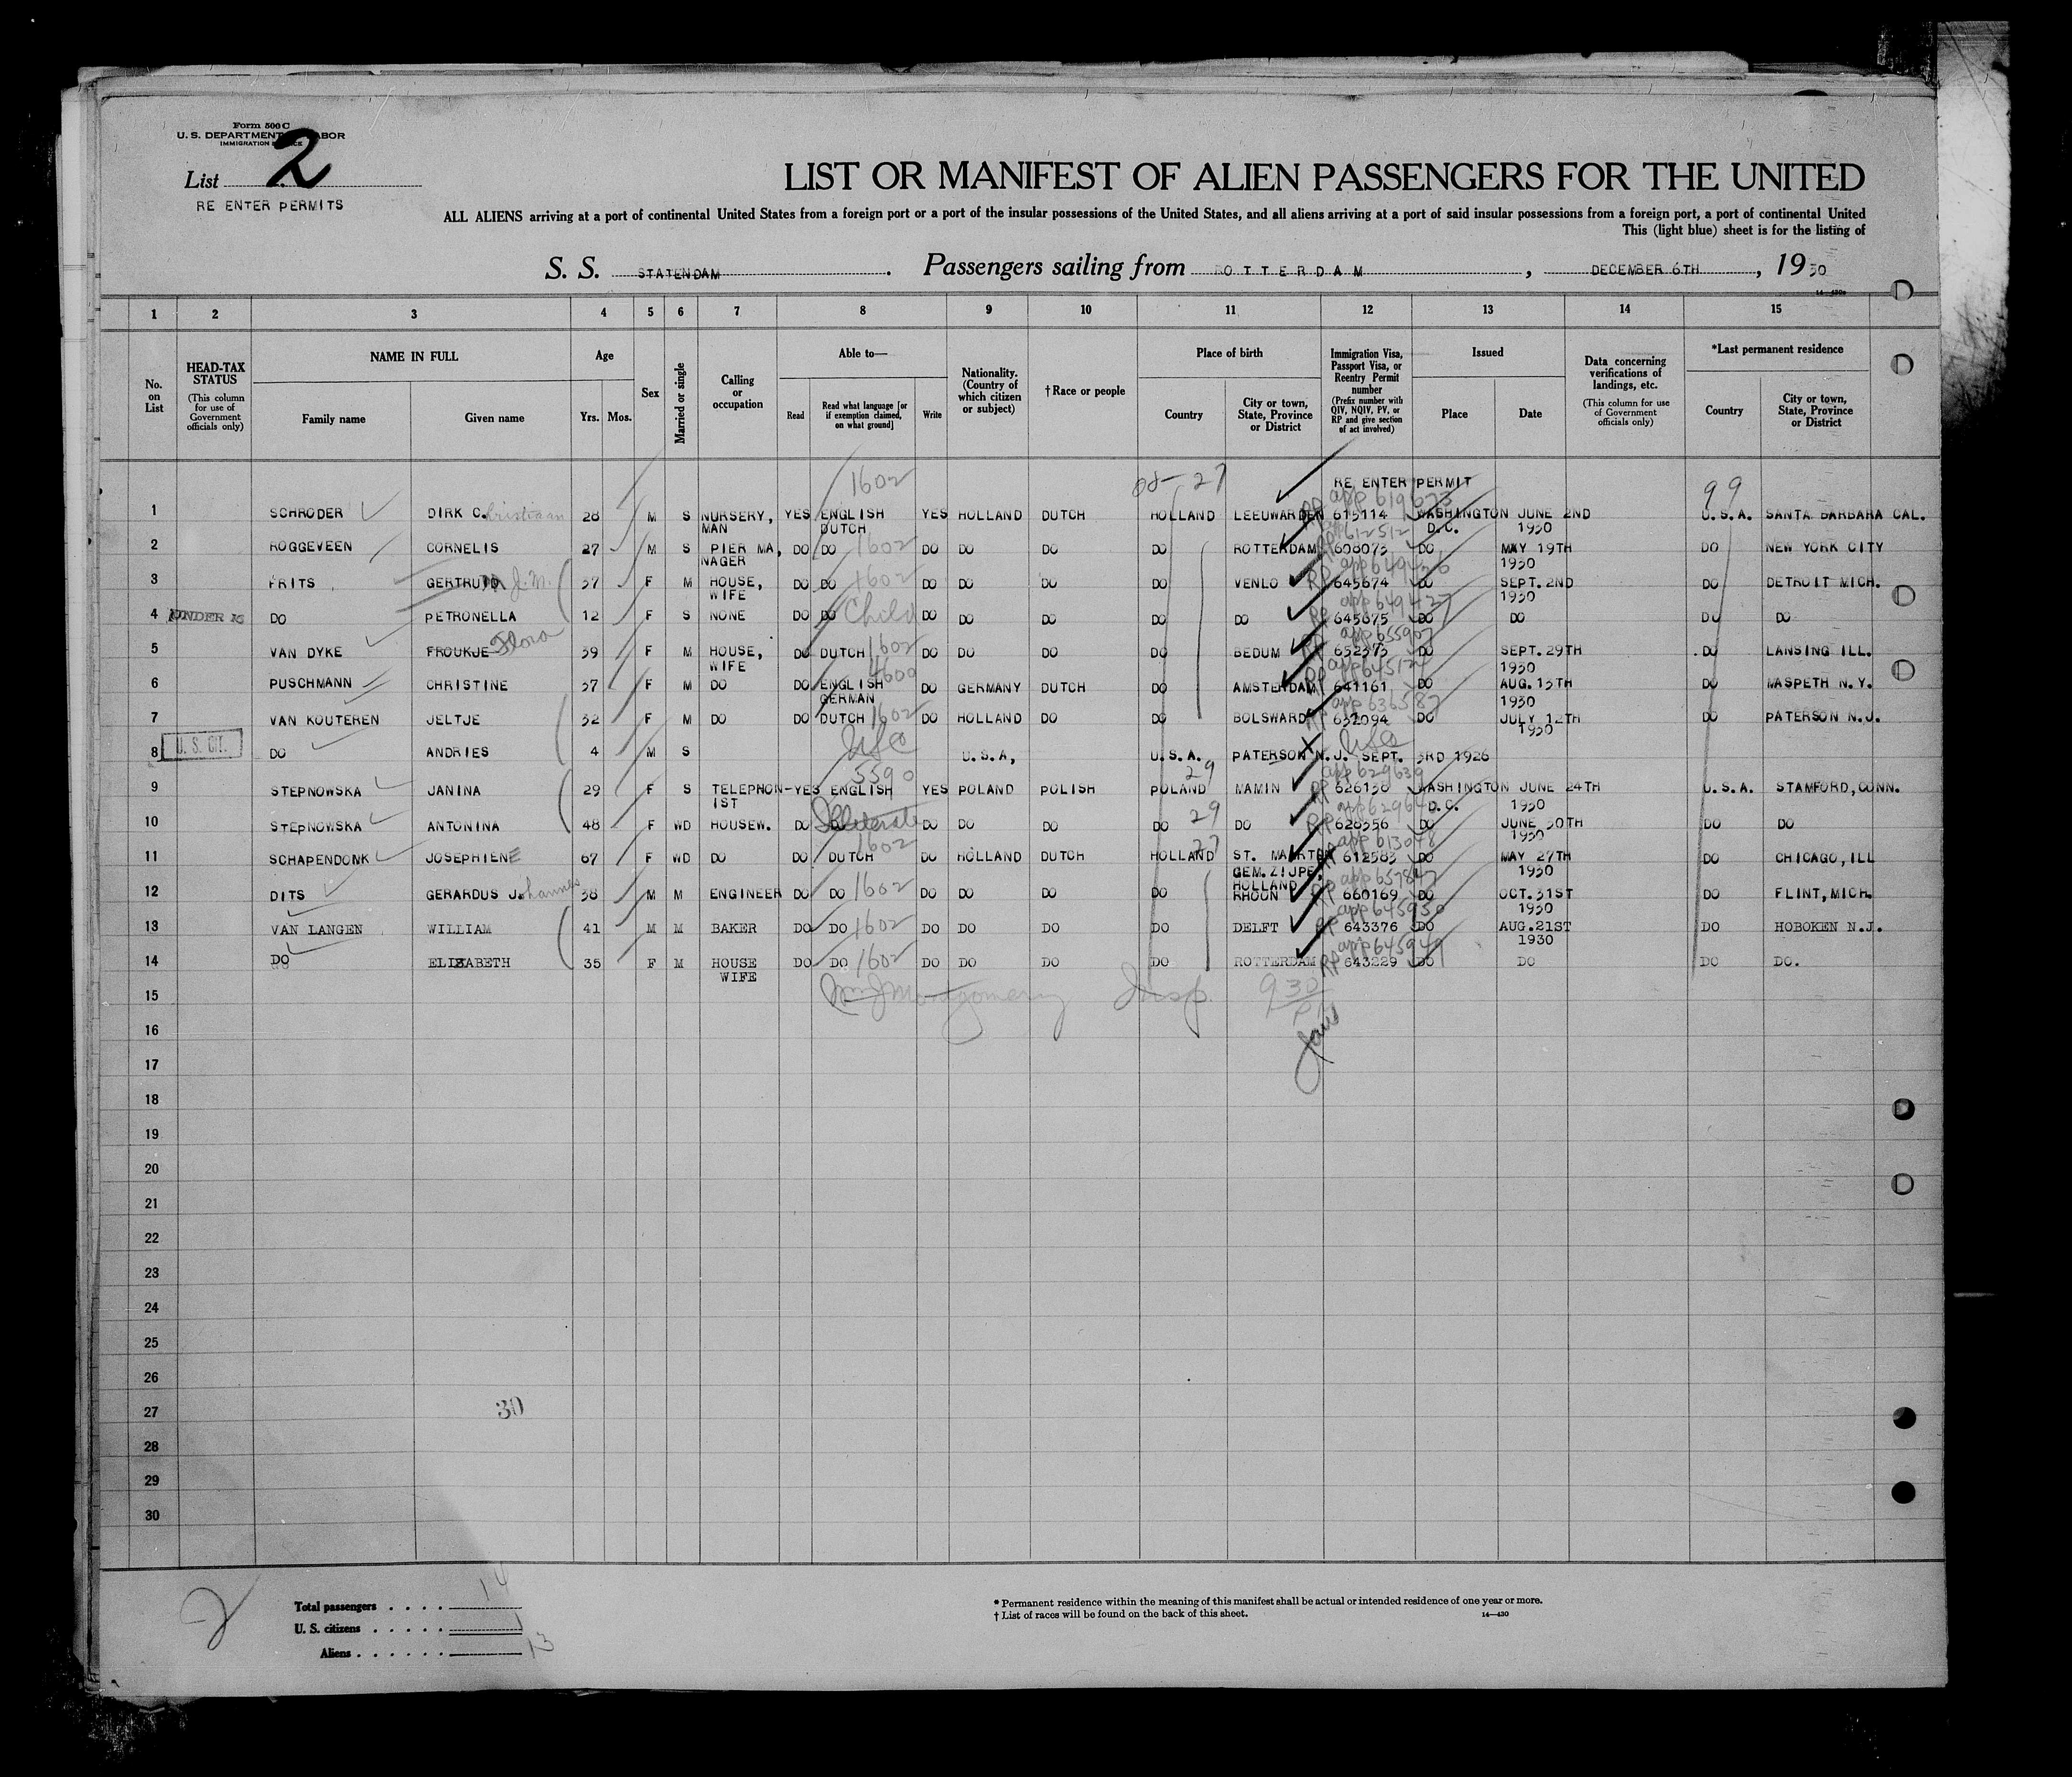 Form 500 C
U. S. DEPARTMENT ABOR
IMMIGRATION
List 2
RE ENTER PERMITS
LIST OR MANIFEST OF ALIEN PASSENGERS FOR THE UNITED
ALL ALIENS arriving at a port of continental United States from a foreign port or a port of the insular possessions of the United States, and all aliens arriving at a port of said insular possessions from a foreign port, a port of continental United
This (light blue) sheet is for the listing of
S. S. STATENDAM. Passengers sailing from ROTTERDAM, DECEMBER 6TH, 1930
1 2 3 4 5 6 7 8 9 10 11 12 13 14 15
No. on List
HEAD-TAX STATUS
(This column for use of Government officials only)
NAME IN FULL
Family name Given name
Age
Yrs. Mos.
Sex
Married or single
Calling or occupation
Able to—
Read
Read what language [or if exemption claimed, on what ground]
Write
Nationality. (Country of which citizen or subject)
† Race or people
Place of birth
Country
City or town, State, Province or District
Immigration Visa, Passport Visa, or Reentry Permit number
(Prefix number with QIV, NQIV, PV, or RP and give section of act involved)
Issued
Place Date
Data concerning verifications of landings, etc.
(This column for use of Government officials only)
*Last permanent residence
Country
City or town, State, Province or District
1602 27 RE ENTER PERMIT 99
app 619673
1 SCHRODER DIRK C. hristiaan 28 M S NURSERY, YES ENGLISH YES HOLLAND DUTCH HOLLAND LEEUWARDEN RP 615114 WASHINGTON JUNE 2ND U.S.A. SANTA BARBARA CAL.
MAN DUTCH D.C. 1930
app 612512
2 ROGGEVEEN CORNELIS 27 M S PIER MA, DO DO 1602 DO DO DO DO ROTTERDAM RP 608073 DO MAY 19TH DO NEW YORK CITY
NAGER 1930
app 649426
3 FRITS GERTRUID M J.M. 37 F M HOUSE, DO DO 1602 DO DO DO DO VENLO RP 645674 DO SEPT. 2ND DO DETROIT MICH.
WIFE 1930
app 649427
4 UNDER 16 DO PETRONELLA 12 F S NONE DO DO Child DO DO DO DO DO RP 645675 DO DO DO DO
app 655907
5 VAN DYKE FROUKJE Flora 39 F M HOUSE, DO DUTCH 1602 DO DO DO DO BEDUM RP 652373 DO SEPT. 29TH DO LANSING ILL.
WIFE 4600 1930
app 645124
6 PUSCHMANN CHRISTINE 37 F M DO DO ENGLISH DO GERMANY DUTCH DO AMSTERDAM RP 641161 DO AUG. 13TH DO MASPETH N.Y.
GERMAN 1930
app 636587
7 VAN KOUTEREN JELTJE 32 F M DO DO DUTCH 1602 DO HOLLAND DO DO BOLSWARD RP 632094 DO JULY 12TH DO PATERSON N.J.
1930
8 U. S. CIT. DO ANDRIES 4 M S USC U.S.A, U.S.A. PATERSON N.J. SEPT. 3RD 1926 USC
5590 29 app 629639
9 STEPNOWSKA JANINA 29 F S TELEPHON- YES ENGLISH YES POLAND POLISH POLAND MAMIN RP 626130 WASHINGTON JUNE 24TH U.S.A. STAMFORD, CONN.
IST D.C. 1930
10 STEPNOWSKA ANTONINA 48 F WD HOUSEW. DO DO Illiterate DO DO DO DO 29 DO RP 626556 DO JUNE 30TH DO DO
1602 27 app 613048 1930
11 SCHAPENDONK JOSEPHIENE 67 F WD DO DO DUTCH DO HOLLAND DUTCH HOLLAND ST. MAARTEN RP 612583 DO MAY 27TH DO CHICAGO, ILL
GEM. ZIJPE, 1930
HOLLAND
app 657847
12 DITS GERARDUS J. ohannes 38 M M ENGINEER DO DO 1602 DO DO DO DO RHOON RP 660169 DO OCT. 31ST DO FLINT, MICH.
1930
app 645950
13 VAN LANGEN WILLIAM 41 M M BAKER DO DO 1602 DO DO DO DO DELFT RP 643376 DO AUG. 21ST DO HOBOKEN N.J.
1930
app 645949
14 DO ELIZABETH 35 F M HOUSE DO DO 1602 DO DO DO DO ROTTERDAM RP 643229 DO DO DO DO.
WIFE
15 Wm J Montgomery Insp. 930
16
17
18
19
20
21
22
23
24
25
26
27 30
28
29
30
2
Total passengers . . . . 14
U. S. citizens . . . . . 1
Aliens . . . . . . 13
* Permanent residence within the meaning of this manifest shall be actual or intended residence of one year or more.
† List of races will be found on the back of this sheet. 14—430